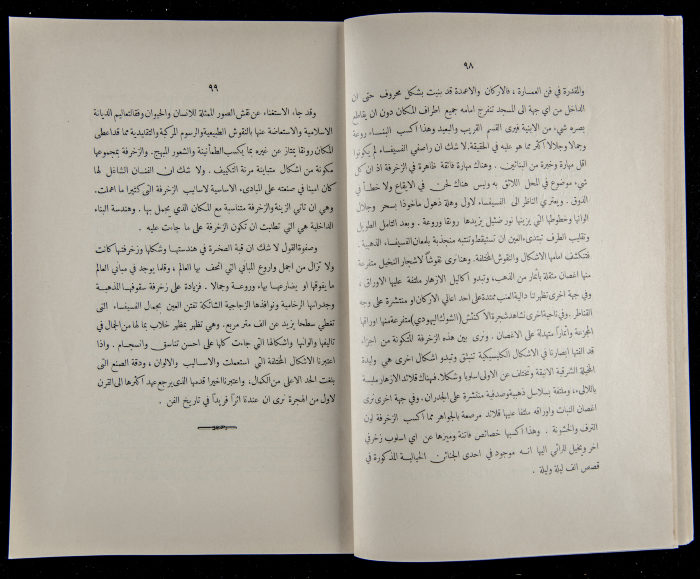 ٩٨
والمقدرة في فن العمارة ، فالاركان والاعمدة قد بنيت بشكل محروف حتى ان
الداخل من اي جهة الى المسجد تنفرج امامه جميع اطراف المكان دون ان يقاطع
بصره شيء من الابنية فيرى القسم القريب والبعيد وهذا اكسب البنـاء روعة
وجمالا وجلالا اكثر مما هو عليه في الحقيقة. لا شك ان راصفي الفسيفساء لم يكونوا
اقل مهارة وخبرة من البنائين . وهناك مهارة فائقة ظاهرة في الزخرفة اذ ان كل
شيء موضوع في المحل اللائق به وليس هناك لحن في الايقاع ولا خطأ في
الذوق . ويعتري الناظر الى الفسيفساء لاول وهلة ذهول مأخوذا بسحر وجلال
الوانها وخطوطها التي يزينها نور ضئيل يزيدها رونقا وروعة . وبعد التأمل الطويل
وتقليب الطرف تبتدىء العين ان تستيقظ وتنتبه منجذبة بلمعان الفسيفساء الذهبية .
فتتكشف امامها الاشكال والنقوش المختلفة. وهنا نرى نقوشا لاشجار النخيل متفرعة
منها اغصان مثقلة بأثمار من الذهب، وتبدو اكاليل الازهار ملتفة عليها الاوراق ،
وفي جهة اخرى تظهر لنا دالية العنب ممتدة على احد اعالي الاركان او منتشرة على وجه
القناطر . وفي ناحية اخرى نشاهد شجر الاكنثس (الشوك اليهودي) متفرعة منها اوراقها
المجزعة واثمارا متهدلة على الاغصان . ونرى بين هذه الزخرفة المتكونة من اجزاء
قد الفتها ابصارنا في الاشكال الكليسيكية تنبثق وتبدو اشكال اخرى هي وليدة
المخيلة الشرقية الانيقة وتختلف عن الاولى اسلوبا وشكلا. فهناك قلائد الازهار ملبسة
باللآلىء، وملتفة بسلاسل ذهبية وصدفية منتشرة على الجدران . وفي جهة اخرى نرى
اغصان النبات واوراقه ملتفا عليها قلائد مرصعة بالجواهر مما اكسب الزخرفة لون
الترف والخشونة . وهذا اكسبها خصائص فاتنة وميزها عن اي اسلوب زخرفي
اخر ويخيل للرائي اليها انــه موجود في احدى الجنائن الخيالية المذكورة في
قصص الف ليلة وليلة .
٩٩
وقد جاء الاستغناء عن نقش الصور الممثلة للانسان والحيوان وفقا لتعاليم الديانة
الاسلامية والاستعاضة عنها بالنقوش الطبيعية والرسوم المركبة والتقليدية مما قد اعطى
المكان رونقا يمتاز عن غيره بما يكسب الطمأنينة والشعور المبهج. والزخرفة بمجموعها
مكونة من اشكال متباينة مرنة التكييف . ولا شك ان الفنـان الشاغل لها
كان امينا في صنعته على المبادىء الاساسية لاساليب الزخرفة التي كثيرا ما اهملت،
وهي ان تاتي الزينة والزخرفة متناسبة مع المكان الذي يحمل بها . وهندسة البناء
الداخلية هي التي تطالبت ان تكون الزخرفة على ما جاءت عليه .
وصفوة القول لا شك ان قبة الصخرة في هندستهــا وشكلها وزخرفتها كانت
ولا تزال من اجمل واروع المباني التي اتحف بها العالم ، وقلما يوجد في مباني العالم
ما يفوقها او يضارعها بهاء وروعــة وجمالا . فزيادة على زخرفة سقوفهــا المذهبــة
وجدرانها الرخامية ونوافذها الزجاجية الشائكة تفتن العين بجمال الفسيفساء التي
تغطي سطحا يزيد عن الف متر مربع. وهي تظهر بمظهر خلاب بما لها من الجمال في
تاليفها والوانها واشكالها التي جاءت كلها على احسن تناسق وانسجام . واذا
اعتبرنا الاشكال المختلفة التي استعملت والاســاليب والالوان ، ودقة الصنع التي
بلغت الحد الاعلى من الكمال، واعتبرنا اخيرا قدمها الذي يرجع عهد اكثرها الى القرن
لاول من الهجرة نرى ان عندنا اثرا فريدا في تاريخ الفن .